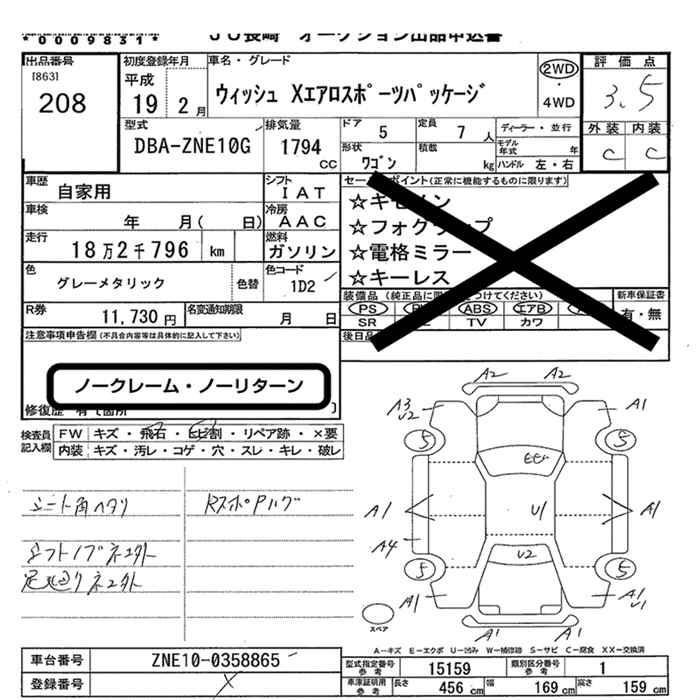 *0009831*
JU長崎 オークション出品申込書
出品番号
[863]
208
初度登録年月
平成
19 2月
車名・グレード
ウィッシュ Xエアロスポーツパッケージ
2WD
・
4WD
評価点
3.5
外装 内装
C C
型式
DBA-ZNE10G
排気量
1794
CC
ドア 5
定員 7人
ディーラー・並行
モデル年式 年
形状 ワゴン
積載 kg
ハンドル 左・右
車歴
自家用
シフト
IAT
車検
年 月( 日)
冷房
AAC
走行
18万2千796 km
燃料
ガソリン
色
グレーメタリック
色替
色コード
1D2
R券
11,730円
名変通知期限
月 日
セールスポイント(正常に機能するものに限ります)
☆キセノン
☆フォグランプ
☆電格ミラー
☆キーレス
装備品
PS ABS エアB
SR TV カワ
新車保証書
有・無
後日
注意事項申告欄(不具合内容等は具体的に記入して下さい)
ノークレーム・ノーリターン
修復歴
検査員
記入欄
FW キズ・飛石・ヒビ割・リペア跡・×要
内装 キズ・汚レ・コゲ・穴・スレ・キレ・破レ
シート角ヘタリ
RスポPハゲ
シフトノブネユ外
足廻りネユ外
A2 A2
A3
U2
A1
5 5
A1 U1 A1
A4
U2
5 5
A1 A1
U1
A1 A1
スペア
A－キズ E－エクボ U－凹み W－補修跡 S－サビ C－腐食 XX－交換済
車台番号
ZNE10-0358865
登録番号
型式指定番号
参考
15159
類別区分番号
参考
1
車庫証明用
参考
長さ 456 cm
幅 169 cm
高さ 159 cm